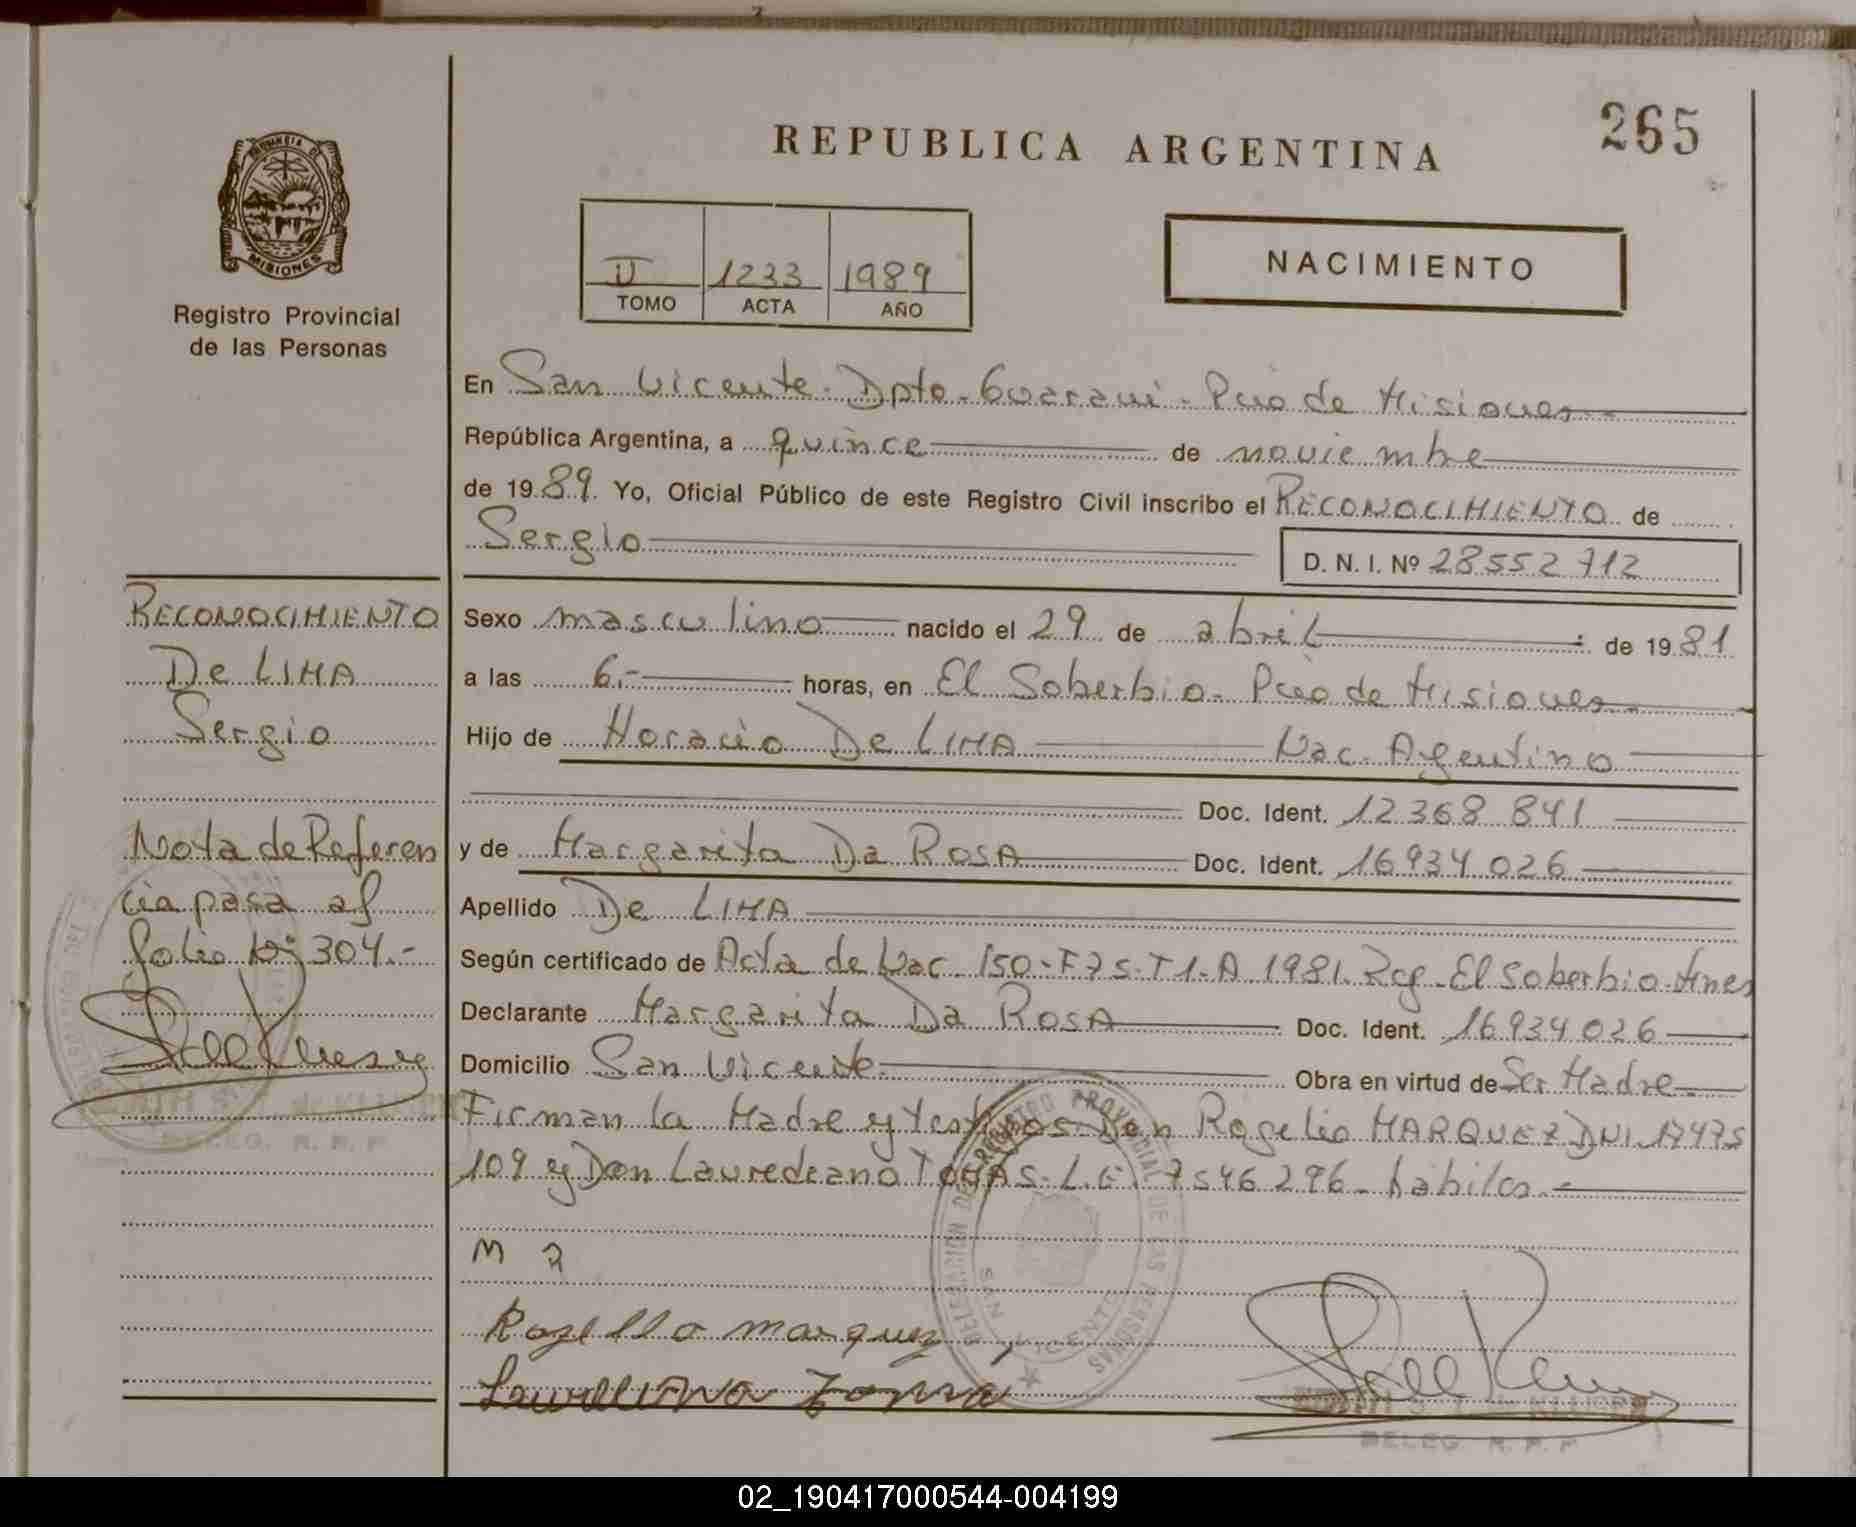 265
REPUBLICA ARGENTINA
PROVINCIA DE
MISIONES
Registro Provincial
de las Personas
II 1233 1989
TOMO ACTA AÑO
NACIMIENTO
En San Vicente - Dpto - Guarani - Pcio de Misiones
República Argentina, a quince de noviembre
de 1989. Yo, Oficial Público de este Registro Civil inscribo el RECONOCIMIENTO de
Sergio
D. N. I. Nº 28552712
Sexo masculino nacido el 29 de abril de 1981
a las 6.- horas, en El Soberbio - Pcio de Misiones
Hijo de Horacio De LIMA Nac. Argentino
Doc. Ident. 12368841
y de Margarita Da ROSA Doc. Ident. 16934026
Apellido De LIMA
Según certificado de Acta de Nac. 150-F75-T1-A 1981. Reg. El Soberbio - Mnes
Declarante Margarita Da ROSA Doc. Ident. 16934026
Domicilio San Vicente Obra en virtud de Ser Madre
Firman la Madre y testigos Don Rogelio MARQUEZ DNI. 17475
109 y Don Lauredeano L.E. 7546296 - habiles.-
M
Rogelio marquez
RECONOCIMIENTO
De LIMA
Sergio
Nota de Referen
cia pasa al
folio Nº 304.-
DELEGACION DEL REGISTRO PROVINCIAL DE LAS PERSONAS
SAN VICENTE
DELEG. R. P. P.
DELEG. R. P. P.
02_190417000544-004199